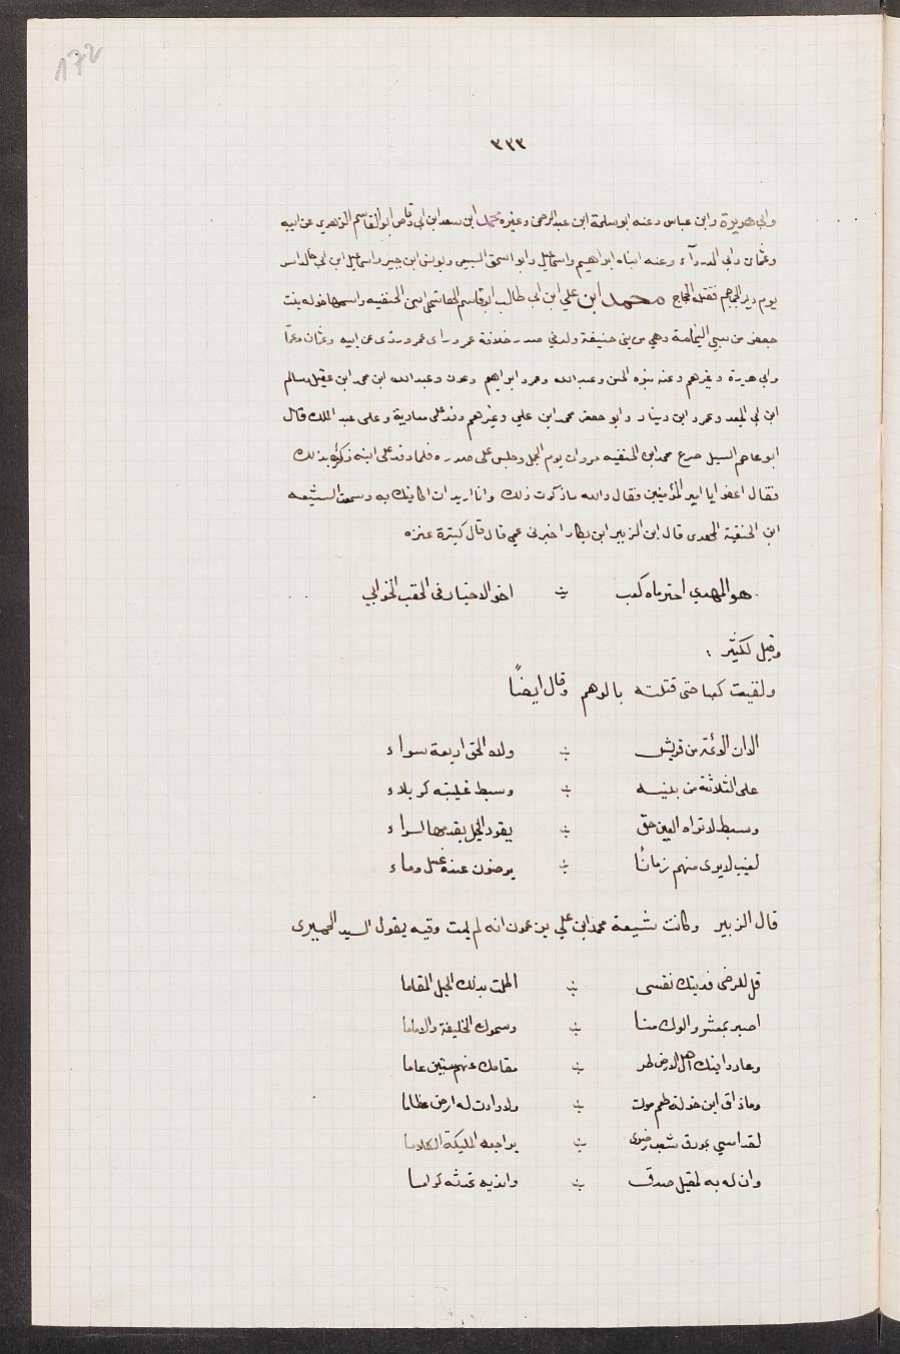 172
٣٣٣
وابي هريرة وابن عباس وعنه ابو سلمة ابن عبد الرحمن وغيره محمد ابن سعد ابن ابي وقاص ابو القاسم الزهري عن ابيه
وعثمان وابي الدرداء وعنه ابناه ابراهيم واسماعيل وابو اسحق السبيعي ويونس ابن جبير واسماعيل ابن ابي خالد اسر
يوم دير الجماجم فقتله الحجاج محمد ابن علي ابن ابي طالب ابو القاسم الهاشمي ابن الحنفيه واسمها خوله بنت
جعفر من سبي اليمامة وهي من بني حنيفة ولد في صدر خلافة عمر وراى عمر وروى عن ابيه وعثمان وعمار
وابي هريرة وغيرهم وعنه بنوه الحسن وعبد الله وعمر وابراهيم وعون وعبد الله ابن محمد ابن عقيل وسالم
ابن ابي الجعد وعمرو ابن دينار وابو جعفر محمد ابن علي وغيرهم وفد على معاوية وعلى عبد الملك قال
ابو عاصم النبيل صرع محمد ابن الحنفيه مروان يوم الجمل وجلس على صدره فلما وفد على ابنه ذكره بذلك
فقال اعفو ايا امير المؤمنين فقال والله ما ذكرت ذلك وانا اريد ان اكافيك به وسمت الشيعه
ابن الحنفية المهدى قال ابن الزبير ابن بكار اخبرنى عمي قال قال كثيرة عزه
هو المهدي اخبرناه كعب ÷ اخو الاخبار فى الحقب الخوالي
وقيل لكثيّر :
ولقيت كعبا حتى قتلته بالوهم وقال ايضاً
الا ان الائمة من قريش ÷ ولاه الحق اربعة سواء
على الثلاثة من بنيه ÷ وسبط غيبته كربلاء
وسبط لا تراه العين حتى ÷ يقود الخيل يقدمها اللواء
تغيب لا يرى منهم زماناً ÷ برضوى عنده عسل وماء
قال الزبير وكانت شيعة محمد ابن علي يزعمون انه لم يمت وفيه يقول السيد الحميرى
قل للوصى فديتك نفسى ÷ اطلت بذلك الجبل المقاما
اضر بمعشر والوك منا ÷ وسموك الخليفة والاماما
وعادوا فيك اهل الارض طر ÷ مقامك عنهم ستين عاما
وما ذاق ابن خولة طعم موت ÷ ولا وارت له ارض عظاما
لقد امسي بمورق شعب رضوى ÷ يراجعه المليكة الكلاما
وان له به لمقيل صدق ÷ واندية تحدثه كراما